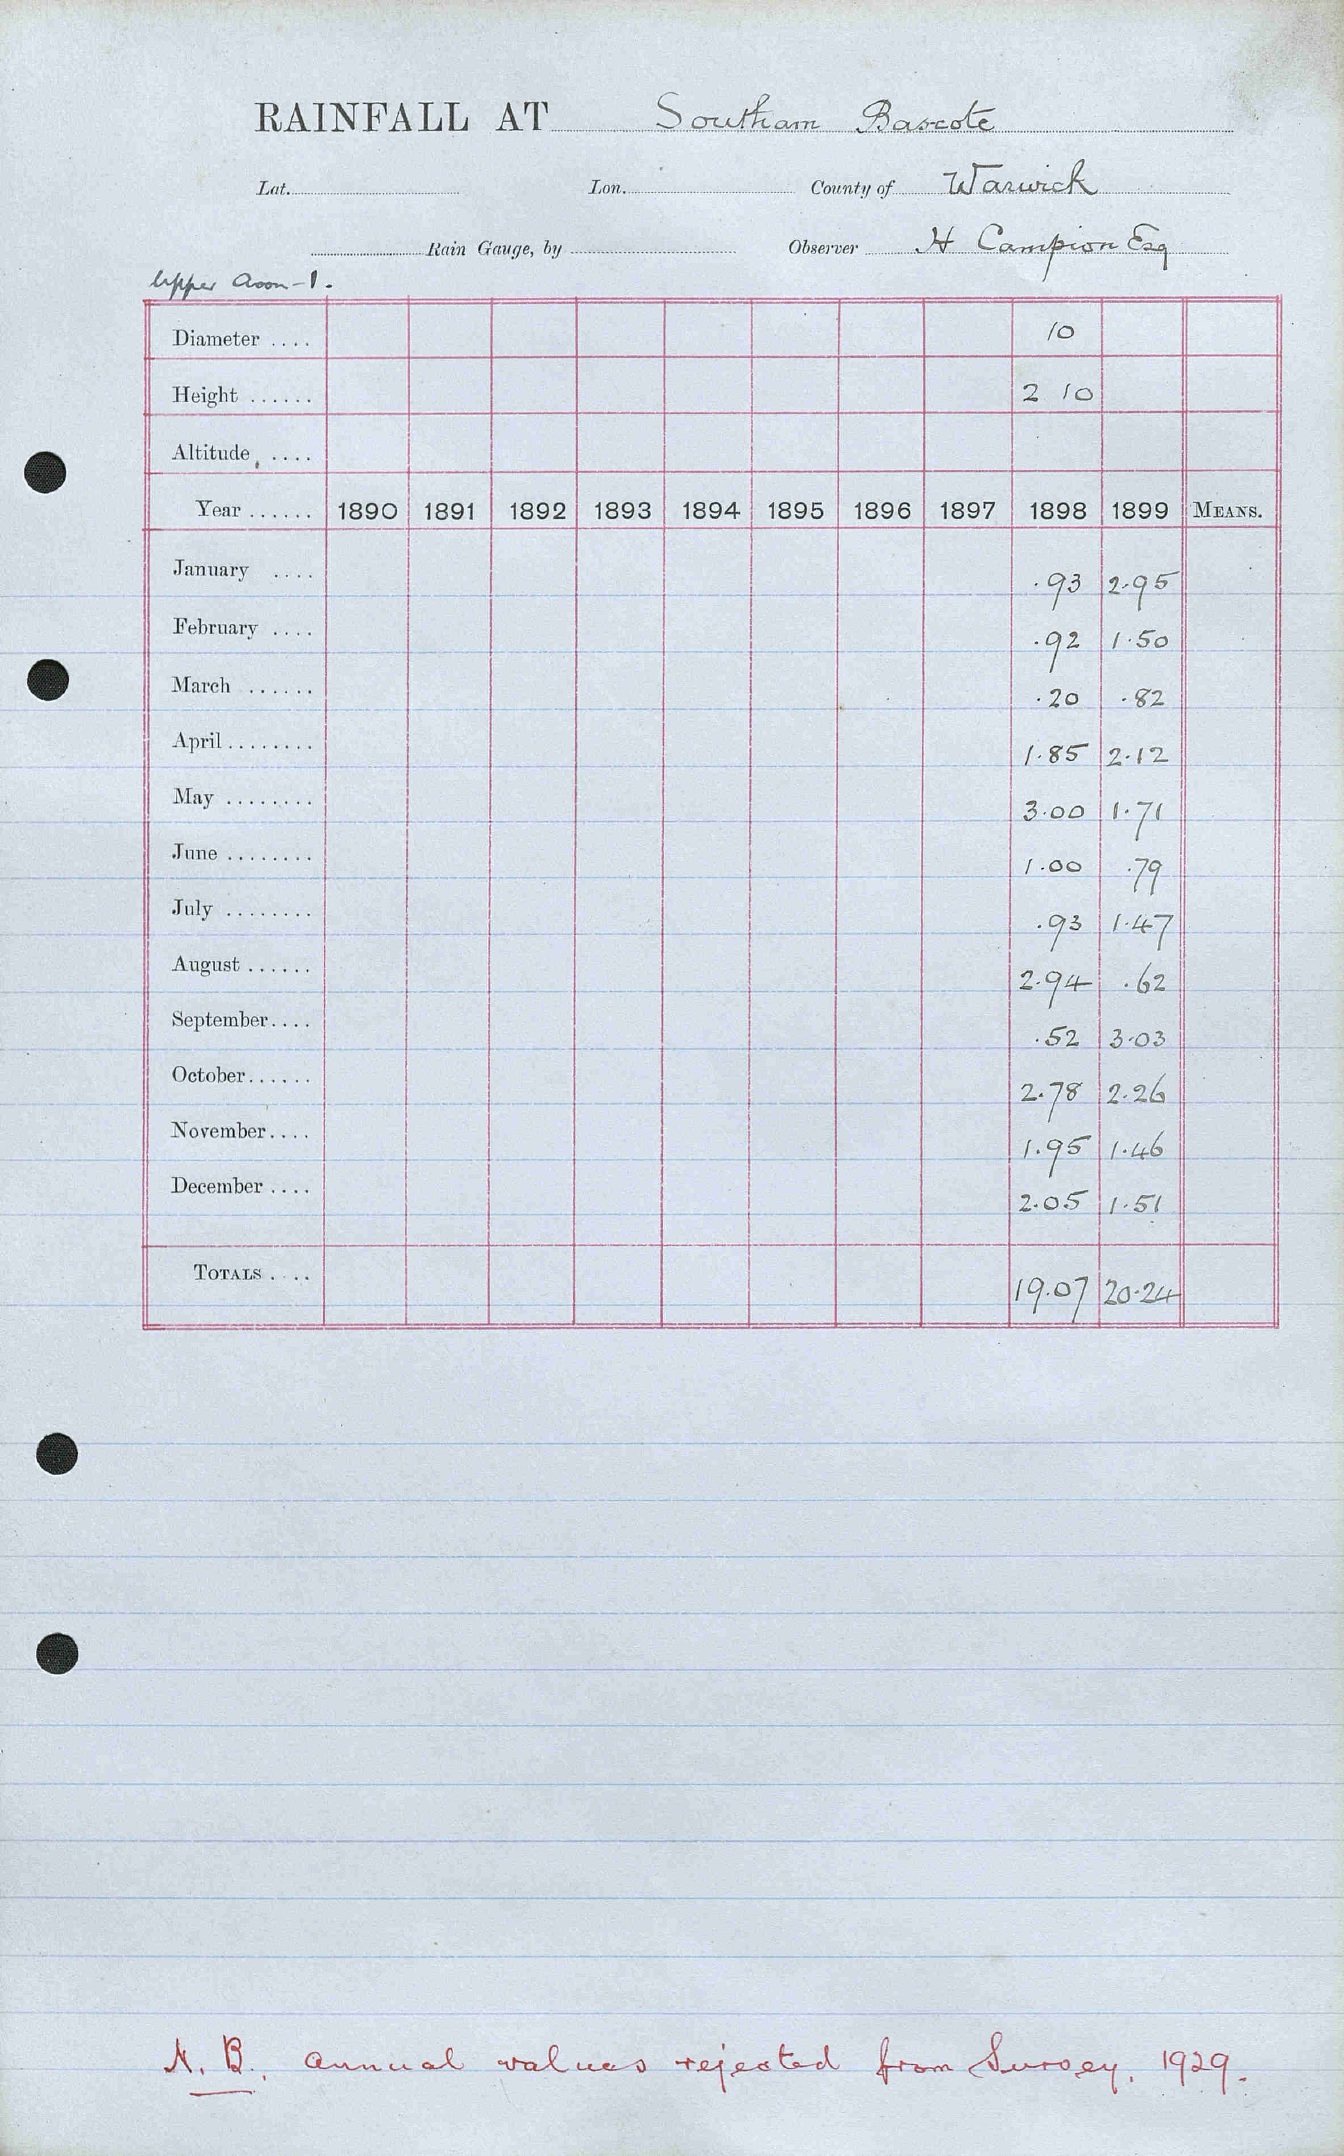 RAINFALL AT Southam Bascote
Lat. Lon. County of Warwick
Rain Gauge, by Observer H Campion Esq
Upper Avon-1.
Diameter .... 10
Height ...... 2 10
Altitude ....
Year ...... 1890 1891 1892 1893 1894 1895 1896 1897 1898 1899 MEANS.
January .... .93 2.95
February .... .92 1.50
March ...... .20 .82
April ........ 1.85 2.12
May ........ 3.00 1.71
June ........ 1.00 .79
July ........ .93 1.47
August ...... 2.94 .62
September.... .52 3.03
October...... 2.78 2.26
November.... 1.95 1.46
December .... 2.05 1.51
TOTALS .... 19.07 20.24
N.B. annual values rejected from Survey, 1929.